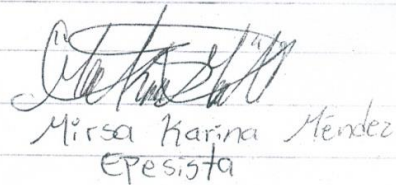 Mirsa Karina Méndez
Epesista